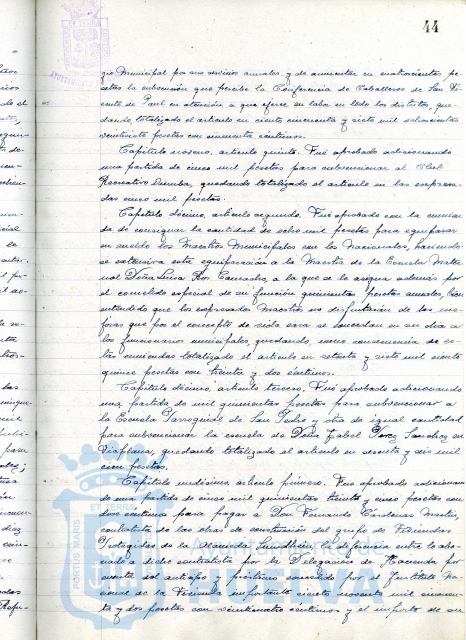 44
gio Municipal por sus servicios anuales y de aumentar en cuatrocientas pe-
setas la subvención que percibe la Conferencia de Caballeros de San Vi-
cente de Paul en atención a que ejerce su labor en todo los distritos, que-
dando totalizado el artículo en ciento cincuenta y siete mil seiscientas
veintisiete pesetas con cincuenta céntimos.
Capítulo noveno, artículo quinto. Fué aprobado adicionando
una partida de cinco mil pesetas para subvencionar al Club
Recreativo Huelva, quedando totalizado el artículo en las expresa-
das cinco mil pesetas.
Capítulo Décimo, artículo segundo. Fué aprobado con la enmien-
da de consignar la cantidad de ocho mil pesetas para equiparar
en sueldo los Maestros Municipales con los Nacionales, haciendo-
se extensiva esta equiparación a la Maestra de la Escuela Mater-
nal Doña Luisa Ros a la que se asigna además por
el cometido especial de su función quinientas pesetas anuales, bien
entendido que los expresados Maestros no disfrutarán de las me-
joras que por el concepto de vida cara se concedan en su día a
los funcionarios municipales, quedando, como consecuencia de es-
tas enmiendas totalizado el artículo en setenta y siete mil ciento
quince pesetas con treinta y dos céntimos.
Capítulo décimo, artículo tercero. Fué aprobado adicionando
una partida de mil quinientas pesetas para subvencionar a
la Escuela Parroquial de San Pedro y otra de igual cantidad
para subvencionar la escuela de Doña Isabel Sanchez en
Viaplana, quedando totalizado el artículo en sesenta y dos mil
cien pesetas.
Capítulo undécimo, artículo primero. Fué aprobado adicionan-
do una partida de cinco mil quinientas treinta y cinco pesetas con
doce céntimos para pagar a Don Fernando Cárdenas Martín,
contratista de las obras de construcción del grupo de Viviendas
Protegidas de la Alameda Sundheim, la diferencia entre lo abo-
nado a dicho contratista por la Delegación de Hacienda por
cuenta del anticipo y préstamo concedido por el Instituto Na-
cional de la Vivienda importante ciento noventa mil cincuen-
ta y dos pesetas con veinticuatro céntimos y el importe de su
PORTUS MARIS ET TERRAE
Ayuntamiento de
HUELVA